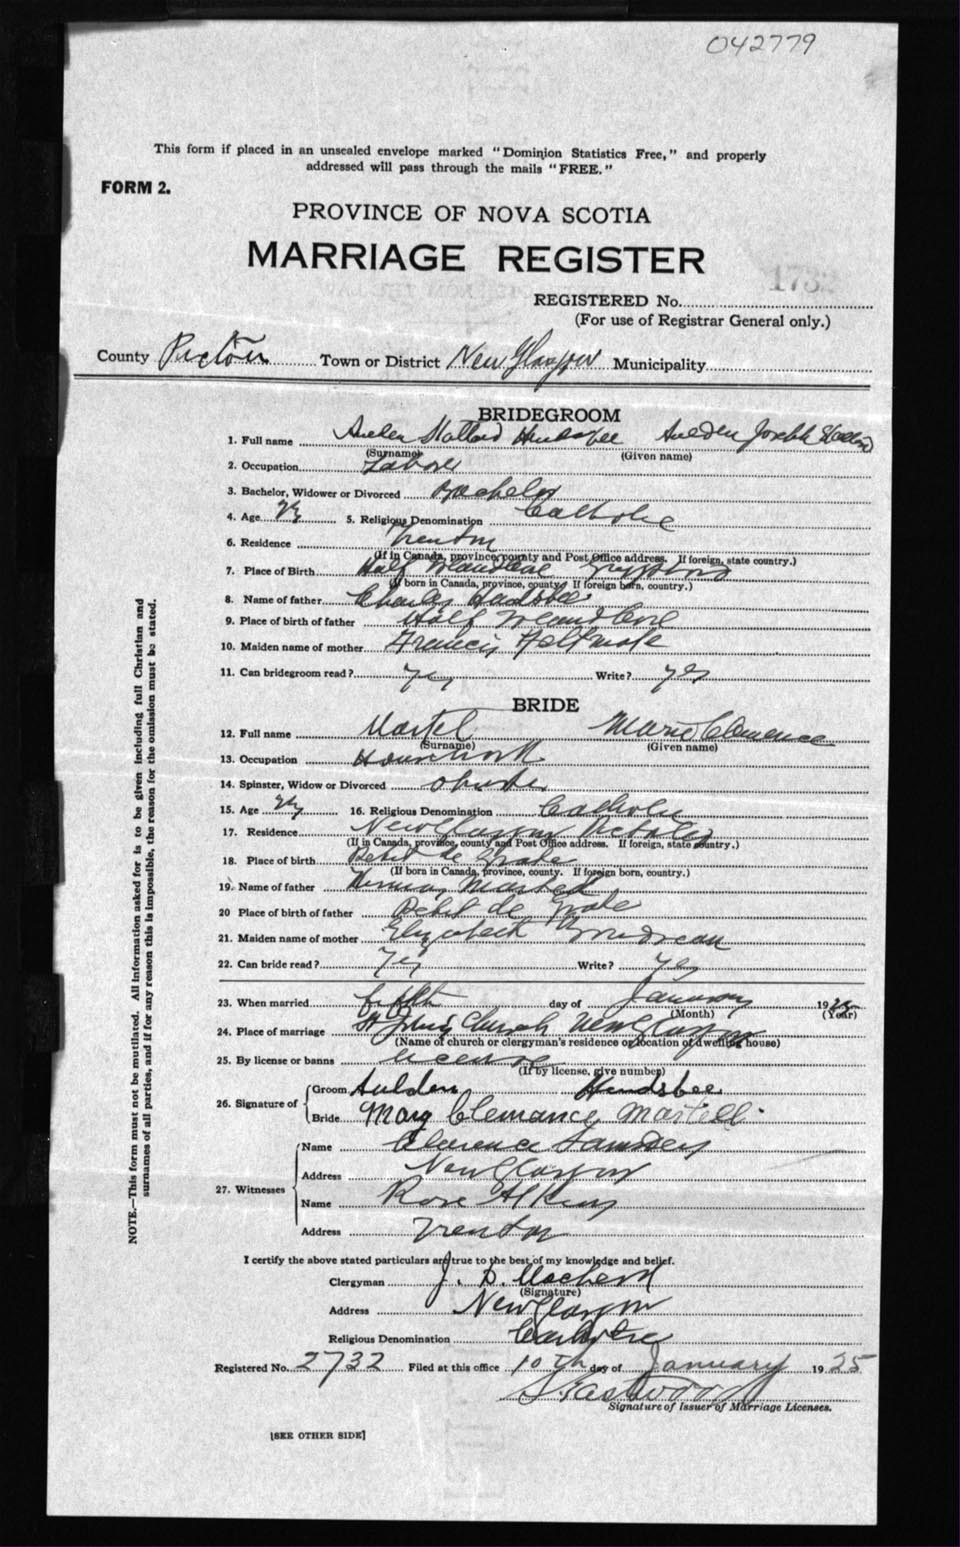 042779
This form if placed in an unsealed envelope marked "Dominion Statistics Free," and properly
addressed will pass through the mails "FREE."
FORM 2.
PROVINCE OF NOVA SCOTIA
MARRIAGE REGISTER
1732
REGISTERED No.
(For use of Registrar General only.)
County Pictou Town or District New Glasgow Municipality
BRIDEGROOM
1. Full name Hendsbee Aulden Joseph
(Surname) (Given name)
2. Occupation Labore
3. Bachelor, Widower or Divorced Bachelor
4. Age 5. Religious Denomination Catholic
6. Residence Trenton
(If in Canada, province, county and Post Office address. If foreign, state country.)
7. Place of Birth Half Island Cove
(If born in Canada, province, county. If foreign born, country.)
8. Name of father Charles Hendsbee
9. Place of birth of father Half Island Cove
10. Maiden name of mother Francis Feltmate
11. Can bridegroom read? yes Write? yes
BRIDE
12. Full name Martel Marie Clemence
(Surname) (Given name)
13. Occupation Housework
14. Spinster, Widow or Divorced
15. Age 16. Religious Denomination Catholic
17. Residence New Glasgow
(If in Canada, province, county and Post Office address. If foreign, state country.)
18. Place of birth Petit de Grate
(If born in Canada, province, county. If foreign born, country.)
19. Name of father Martell
20 Place of birth of father Petit de Grate
21. Maiden name of mother Elizabeth Boudreau
22. Can bride read? yes Write? yes
23. When married fifth day of January 1925
(Month) (Year)
24. Place of marriage St John's Church New Glasgow
(Name of church or clergyman's residence or location of dwelling house)
25. By license or banns license
(If by license, give number)
26. Signature of
Groom Aulden Hendsbee
Bride Mary Clemance Martell.
27. Witnesses
Name Clarence
Address New Glasgow
Name Rose
Address Trenton
I certify the above stated particulars are true to the best of my knowledge and belief.
Clergyman J. D.
(Signature)
Address New Glasgow
Religious Denomination Catholic
Registered No. 2732 Filed at this office 10th day of January 1925
Eastwood
Signature of Issuer of Marriage Licenses.
[SEE OTHER SIDE]
NOTE.—This form must not be mutilated. All information asked for is to be given including full Christian and
surnames of all parties, and if for any reason this is impossible, the reason for the omission must be stated.